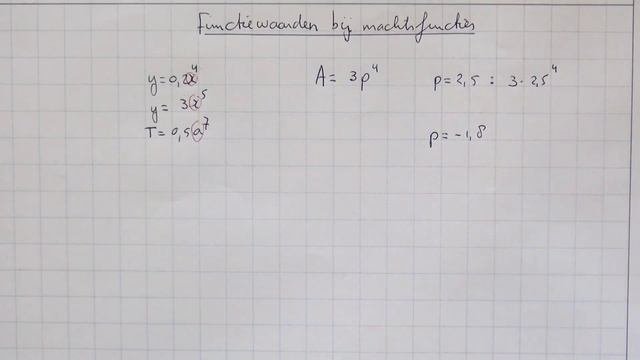 Functiewaarden bij machtsfuncties
y = 0,2x⁴
y = 3x⁵
T = 0,5a⁷
A = 3p⁴
p = 2,5 : 3 · 2,5⁴
p = -1,8